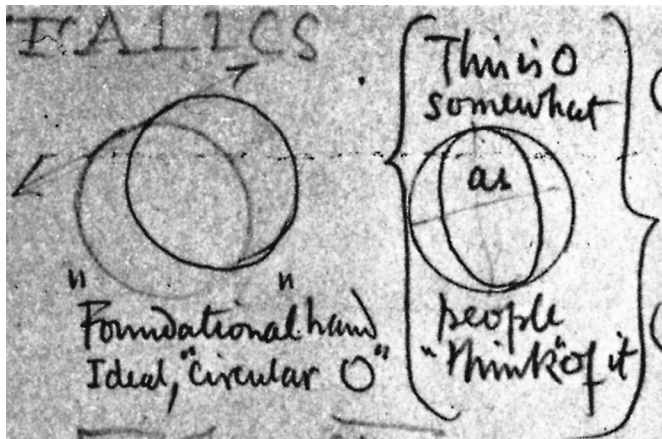 ITALICS
"Foundational hand"
Ideal, "circular O"
This is O
somewhat
as
people
"think" of it